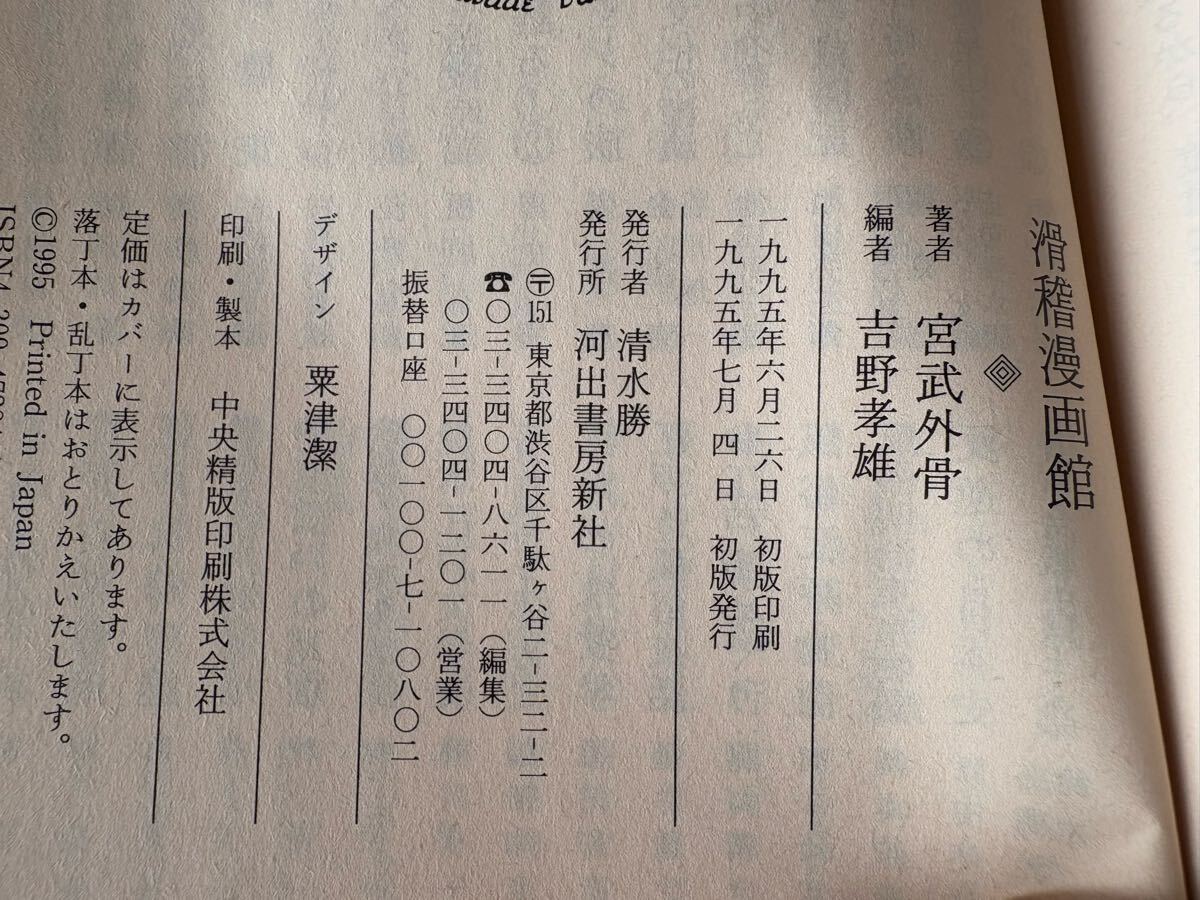 滑稽漫画館
著者 宮武外骨
編者 吉野孝雄
一九九五年六月二六日 初版印刷
一九九五年七月 四 日 初版発行
発行者 清水勝
発行所 河出書房新社
〒151 東京都渋谷区千駄ヶ谷二-三二-二
☎〇三-三四〇四-八六一一(編集)
〇三-三四〇四-一二〇一(営業)
振替口座 〇〇一〇〇-七-一〇八〇二
デザイン 粟津潔
印刷・製本 中央精版印刷株式会社
定価はカバーに表示してあります。
落丁本・乱丁本はおとりかえいたします。
©1995 Printed in Japan